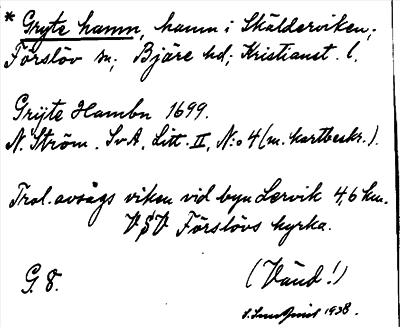 * Gryte hamn, hamn i Skälderviken;
Förslöv sn; Bjäre hd; Kristianst. l.
Grÿte Hambn 1699.
N. Ström. SvA. Litt. II, N:o 4 (m. kartbeskr.).
Trol. avsågs viken vid byn Lervik 4,6 km.
VSV Förslövs kyrka.
G. 8.
(Vänd!)
1938.